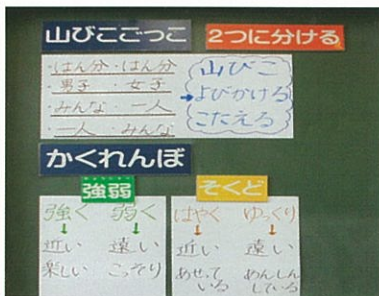 山びこごっこ
2つに分ける
・はん分・はん分
・男子・女子
・みんな・一人
・一人・みんな
山びこ
→よびかける
こたえる
かくれんぼ
強弱
強く 弱く
↓ ↓
近い 遠い
楽しい こっそり
そくど
はやく ゆっくり
↓ ↓
近い 遠い
あせっている
あんしんしている